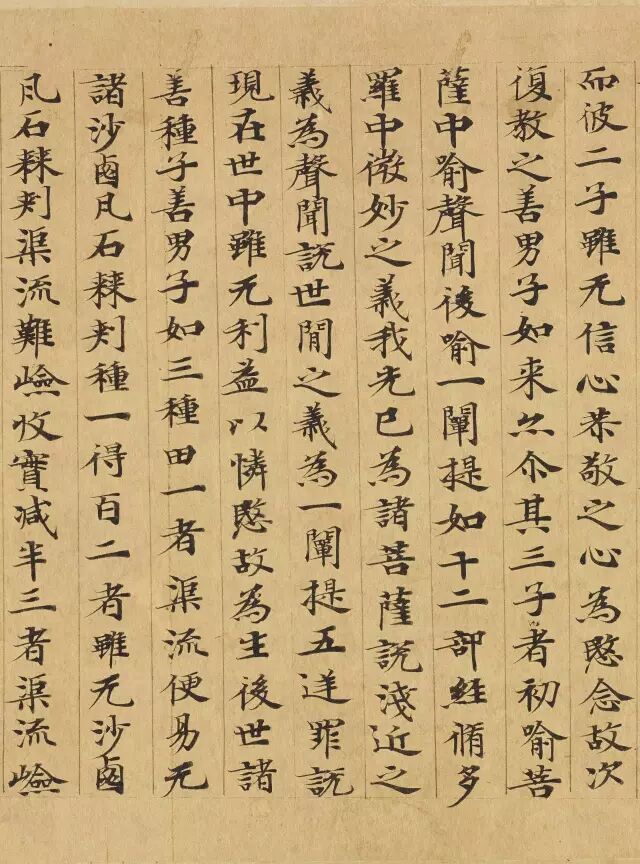 而彼二子雖无信心恭敬之心為愍念故次
復教之善男子如来亦尒其三子者初喻菩
薩中喻聲聞後喻一闡提如十二部經脩多
羅中微妙之義我先已為諸菩薩說淺近之
義為聲聞說世間之義為一闡提五逆罪說
現在世中雖无利益以憐愍故為生後世諸
善種子善男子如三種田一者渠流便易无
諸沙鹵凡石棘刺種一得百二者雖无沙鹵
凡石棘刺渠流難嶮收實減半三者渠流嶮